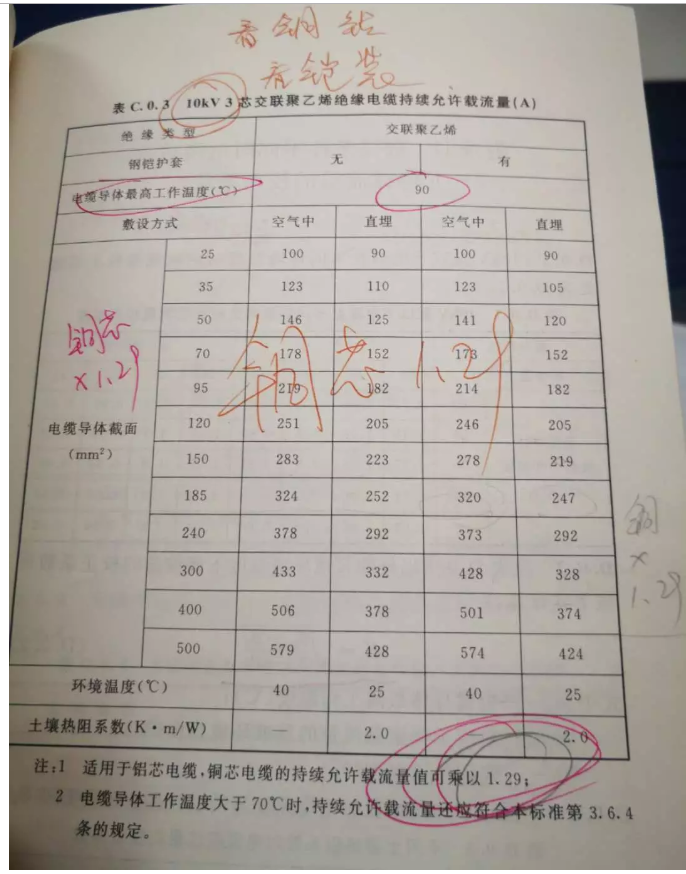 看铜铝
看铠装
表 C.0.3 10kV 3 芯交联聚乙烯绝缘电缆持续允许载流量(A)
绝缘类型 交联聚乙烯
钢铠护套 无 有
电缆导体最高工作温度(℃) 90
敷设方式 空气中 直埋 空气中 直埋
25 100 90 100 90
35 123 110 123 105
50 146 125 141 120
铜芯
×1.29
铜芯 1.29
70 178 152 173 152
95 219 182 214 182
电缆导体截面
(mm²)
120 251 205 246 205
150 283 223 278 219
185 324 252 320 247
240 378 292 373 292
铜
×
1.29
300 433 332 428 328
400 506 378 501 374
500 579 428 574 424
环境温度(℃) 40 25 40 25
土壤热阻系数(K·m/W) — 2.0 — 2.0
注:1 适用于铝芯电缆,铜芯电缆的持续允许载流量值可乘以 1.29;
2 电缆导体工作温度大于 70℃时,持续允许载流量还应符合本标准第 3.6.4
条的规定。